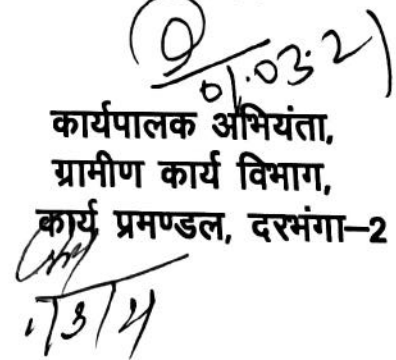 01.03.21
कार्यपालक अभियंता,
ग्रामीण कार्य विभाग,
कार्य प्रमण्डल, दरभंगा–2
1/3/21